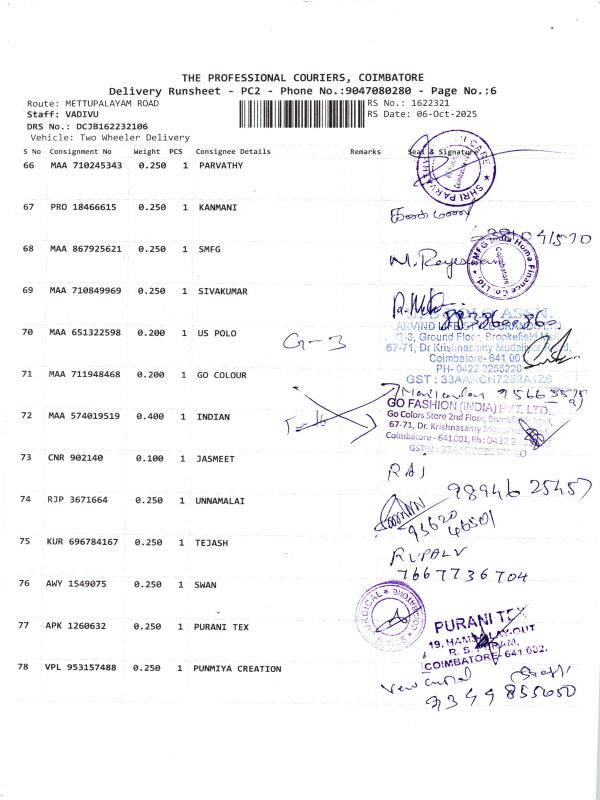 THE PROFESSIONAL COURIERS, COIMBATORE
Delivery Runsheet - PC2 - Phone No.:9047080280 - Page No.:6
Route: METTUPALAYAM ROAD RS No.: 1622321
Staff: VADIVU RS Date: 06-Oct-2025
DRS No.: DCJB162232106
Vehicle: Two Wheeler Delivery
S No Consignment No Weight PCS Consignee Details Remarks Seal & Signature
66 MAA 710245343 0.250 1 PARVATHY
67 PRO 18466615 0.250 1 KANMANI
68 MAA 867925621 0.250 1 SMFG
SMFG India Home Finance Co. Ltd. Coimbatore
69 MAA 710849969 0.250 1 SIVAKUMAR
70 MAA 651322598 0.200 1 US POLO G-3
ARVIND LIFESTYLE BRANDS
G-3, Ground Floor, Brookefield Mall
67-71, Dr Krishnasamy Mudaliyar Road,
Coimbatore- 641 001
PH- 0422 3255220
GST : 33AAACH7252A1Z6
71 MAA 711948468 0.200 1 GO COLOUR
GO FASHION (INDIA) PVT. LTD.,
Go Colors Store 2nd Floor, Brookefield Mall,
67-71, Dr. Krishnasamy
Coimbatore - 641 001, Ph : 0422 2
72 MAA 574019519 0.400 1 INDIAN
73 CNR 902140 0.100 1 JASMEET
RAJ
98946 25457
74 RJP 3671664 0.250 1 UNNAMALAI
93620
46501
75 KUR 696784167 0.250 1 TEJASH
RUPALV
7667736704
76 AWY 1549075 0.250 1 SWAN
SURGICAL COIMBATORE
77 APK 1260632 0.250 1 PURANI TEX
PURANI TEX
R. S. PURAM,
COIMBATORE- 641 002.
78 VPL 953157488 0.250 1 PUNMIYA CREATION
9344 855650